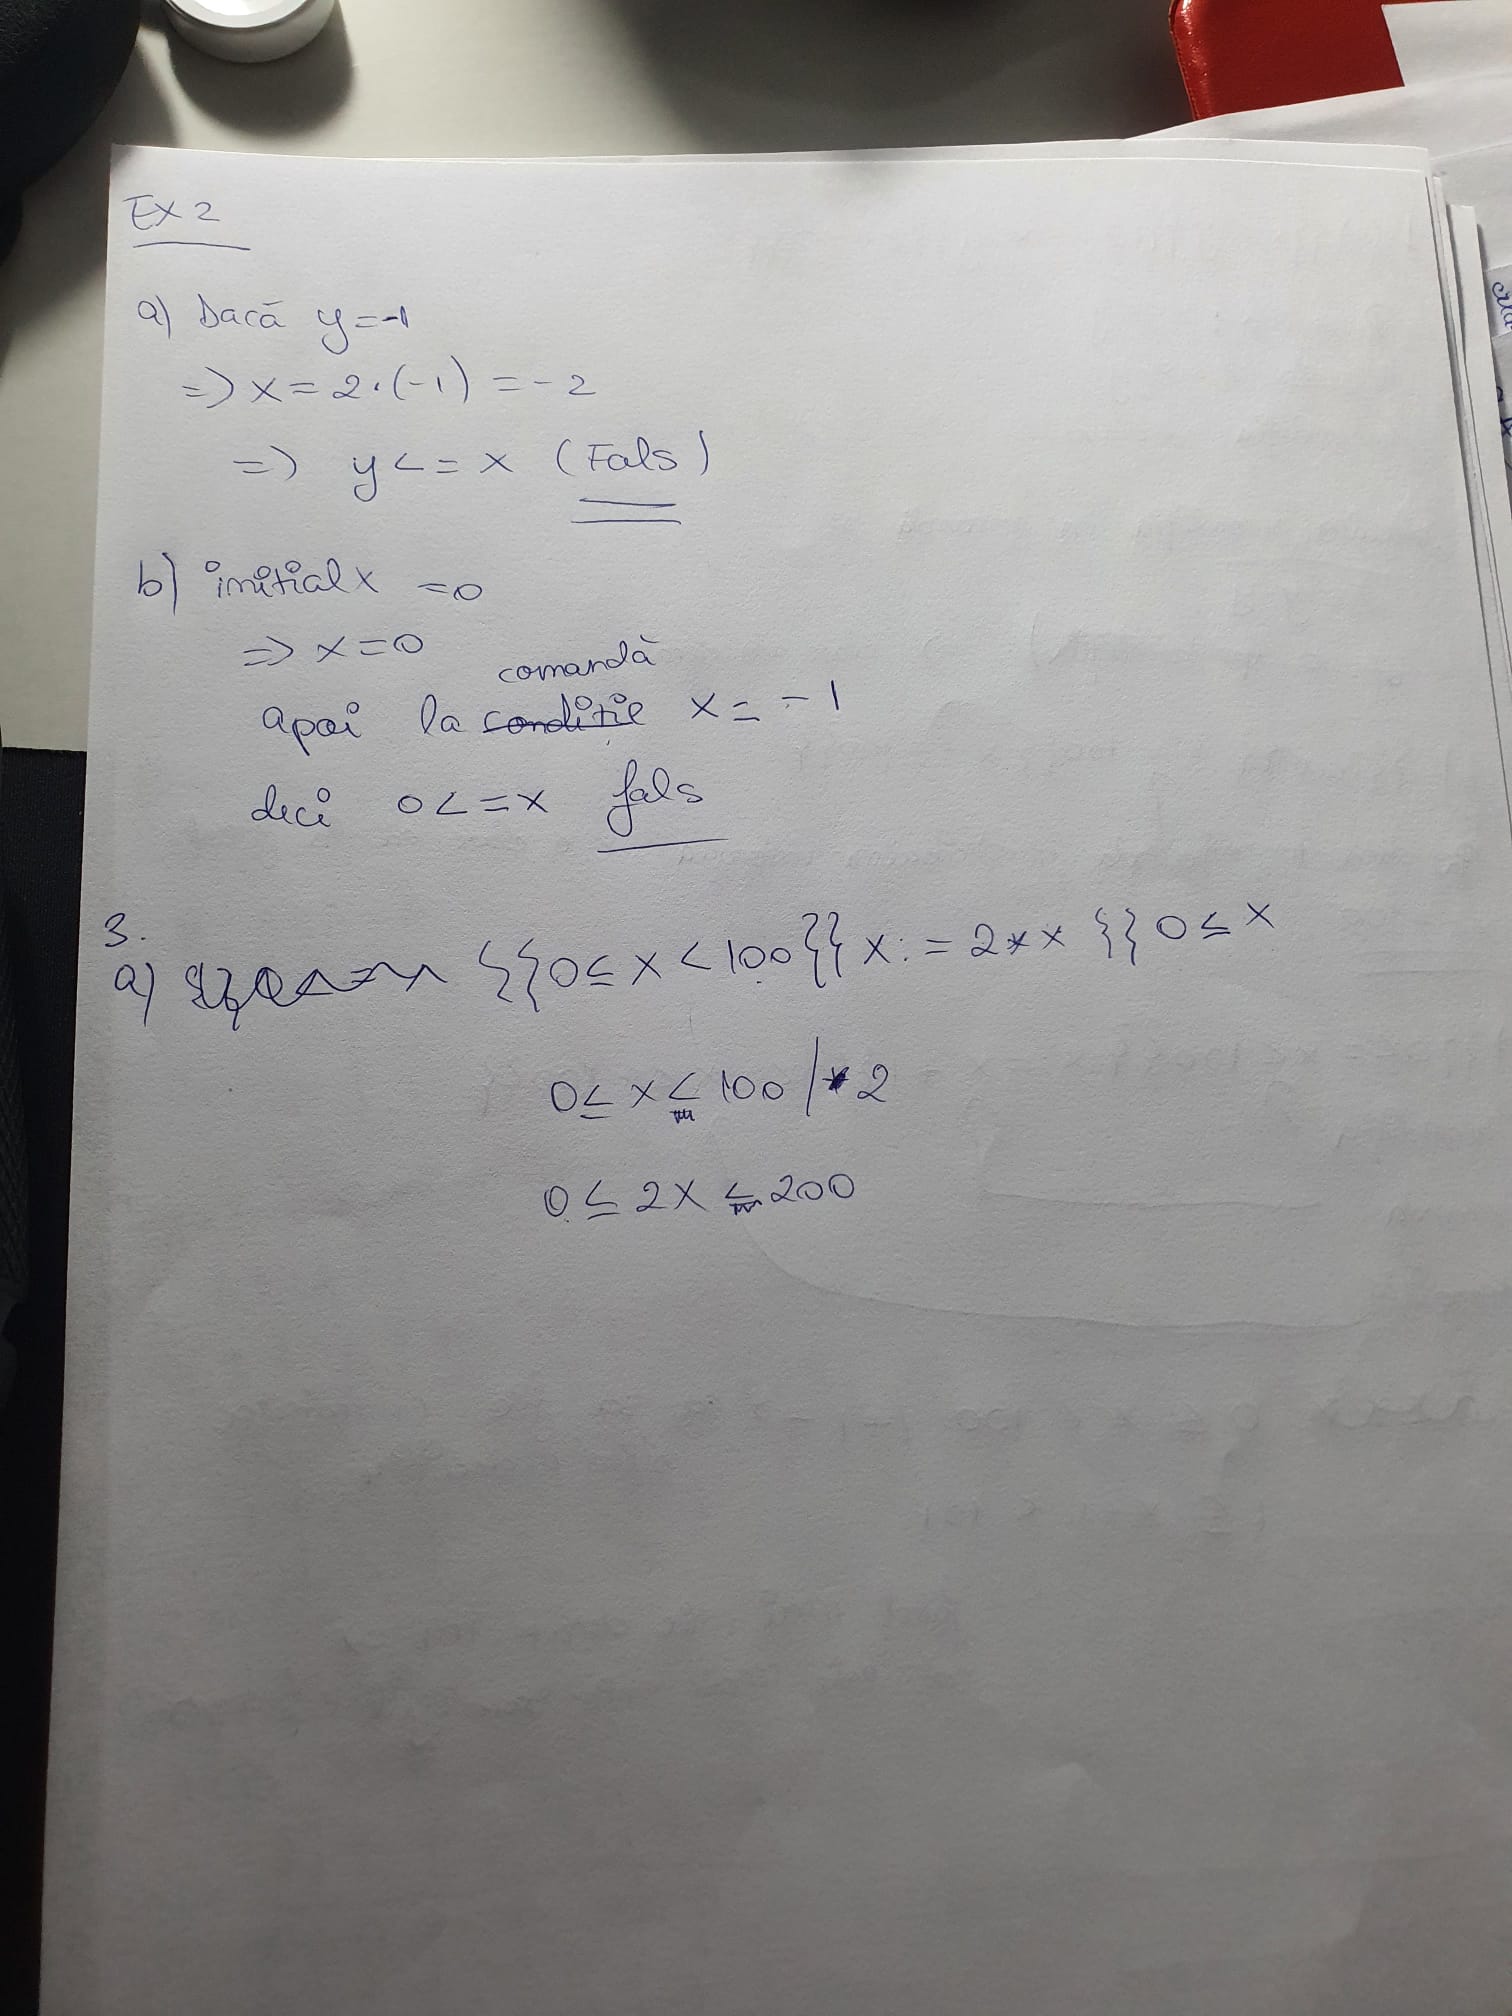 EX 2
a) Dacă y=-1
=> x = 2·(-1) = -2
=> y <= x (Fals)
b) initial x =0
=> x=0
comandă
apoi la conditie x = -1
deci 0<=x fals
3.
a) {{0≤x<100}} x:=2*x {}} 0≤x
0≤x<100 /*2
0≤2x<200